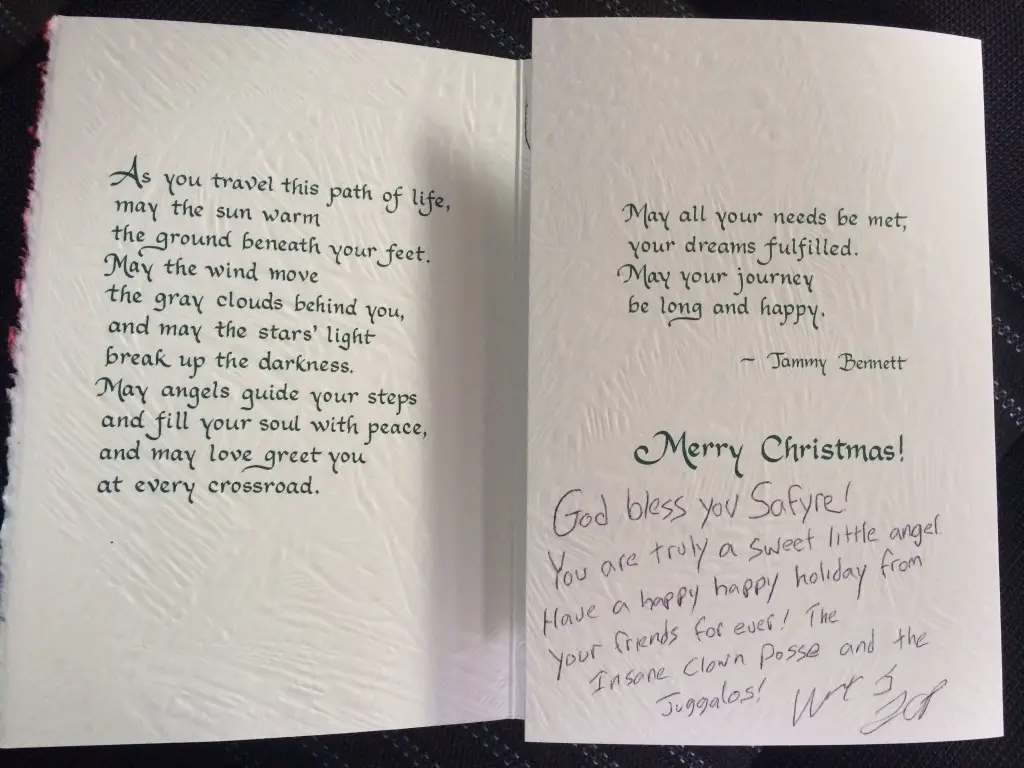 As you travel this path of life,
may the sun warm
the ground beneath your feet.
May the wind move
the gray clouds behind you,
and may the stars' light
break up the darkness.
May angels guide your steps
and fill your soul with peace,
and may love greet you
at every crossroad.
May all your needs be met,
your dreams fulfilled.
May your journey
be long and happy.
~ Tammy Bennett
Merry Christmas!
God bless you Safyre!
You are truly a sweet little angel.
Have a happy happy holiday from
your friends for ever! The
Insane Clown Posse and the
Juggalos!